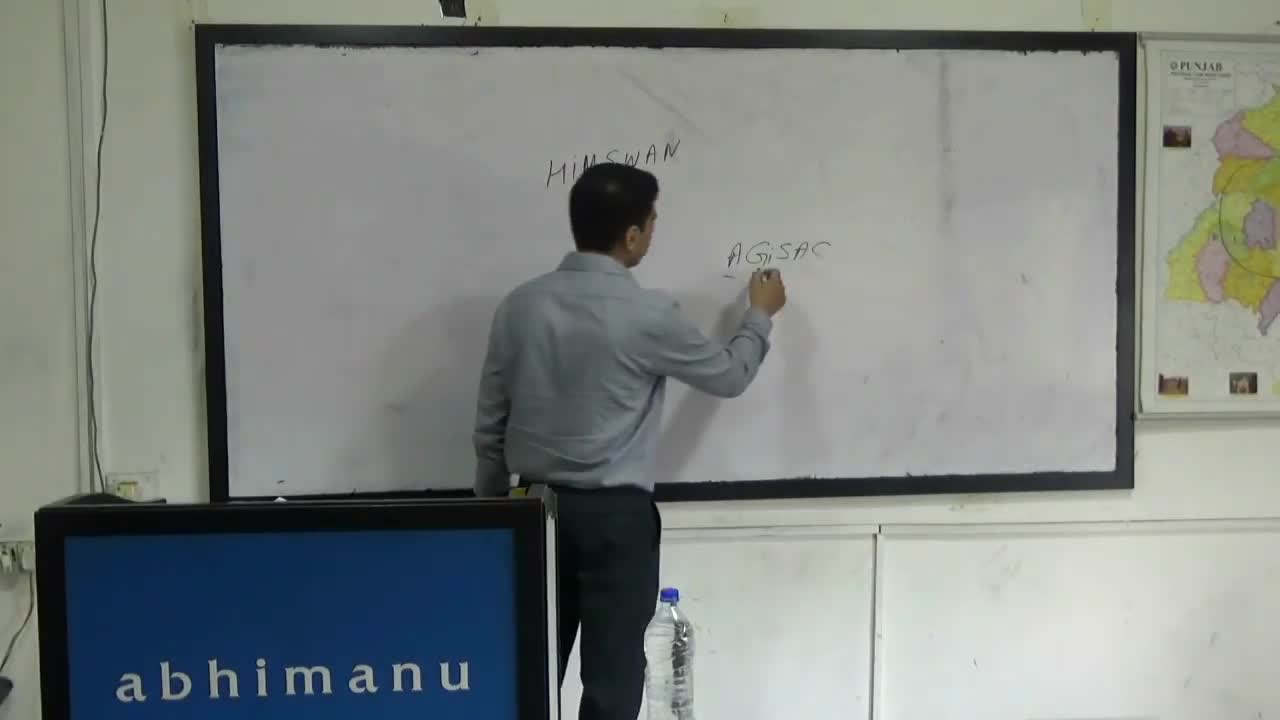 HiMSWAN
AGiSAC
PUNJAB
abhimanu